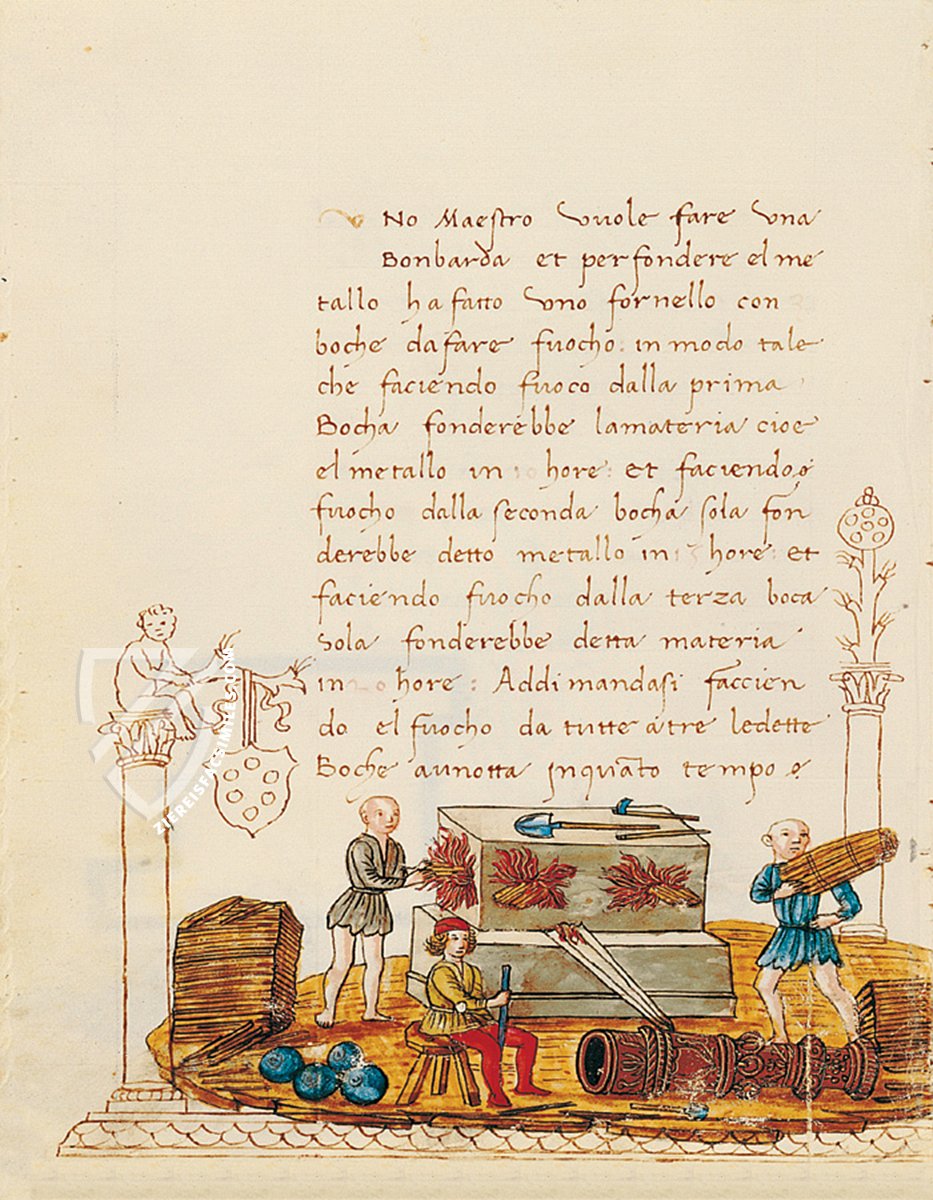 No Maeſtro vuole fare vna
Bonbarda et perfondere el me
tallo ha fatto vno fornello con
boche dafare fuocho: in modo tale
che faciendo fuoco dalla prima
Bocha fonderebbe lamateria cioe
el metallo in 10 hore: et faciendo
fuocho dalla ſeconda bocha ſola fon
derebbe detto metallo in hore: et
faciendo fuocho dalla terza boca
ſola fonderebbe detta materia
in 20 hore: Addimandaſi faccien
do el fuocho da tutte à tre ledette
Boche aunotta inquāto tempo
ZIEREISFACSIMILES.COM